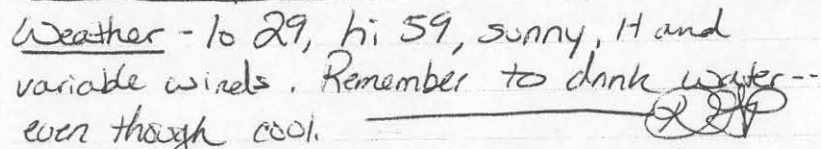 Weather - lo 29, hi 59, sunny, lt and
variable winds. Remember to drink water--
even though cool.